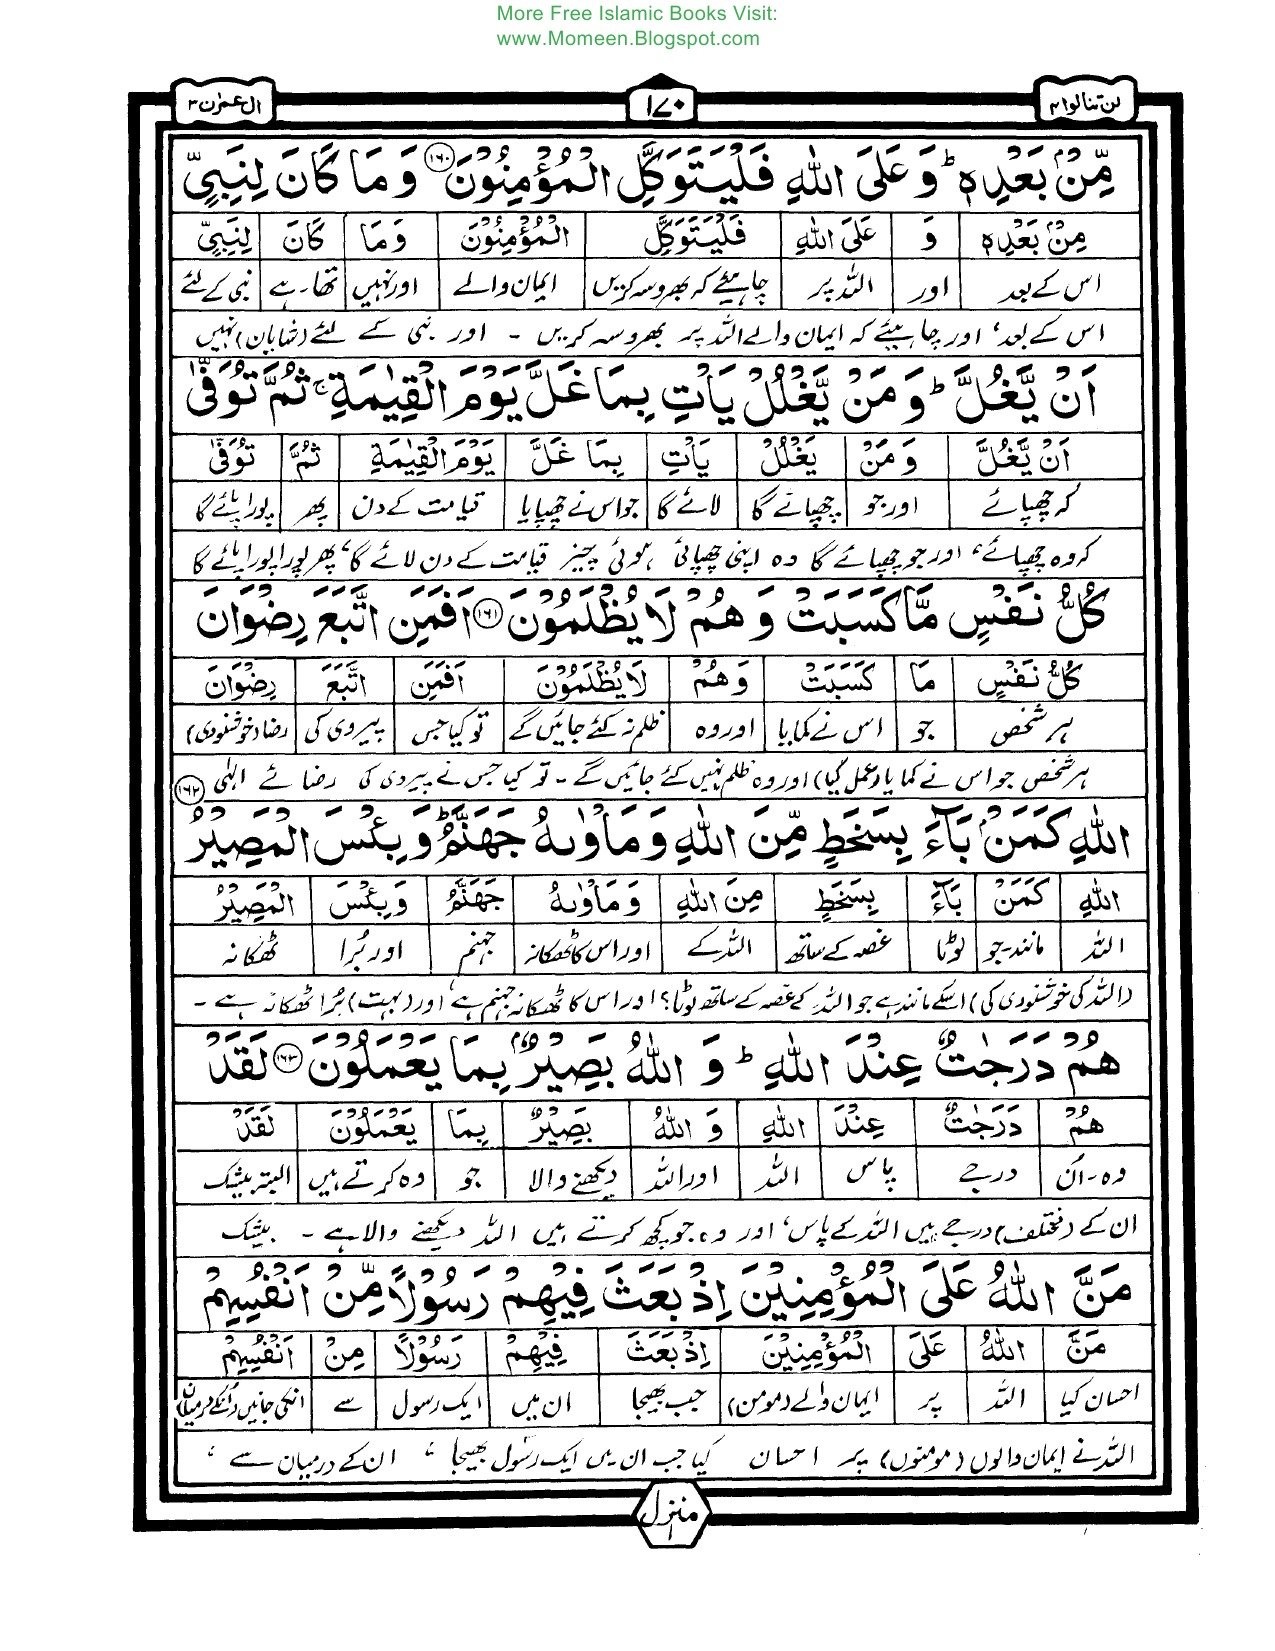 More Free Islamic Books Visit:
www.Momeen.Blogspot.com
لن تنالوا ۴ ۱۷۰ اٰل عمرٰن ۳
مِّنْۢ بَعْدِهٖ ؕ وَ عَلَى اللّٰهِ فَلْيَتَوَكَّلِ الْمُؤْمِنُوْنَ ۱۶۰ وَ مَا كَانَ لِنَبِيٍّ
مِنْۢ بَعْدِهٖ وَ عَلَى اللّٰهِ فَلْيَتَوَكَّلِ الْمُؤْمِنُوْنَ وَمَا كَانَ لِنَبِيٍّ
اس کے بعد اور اللہ پر چاہیئے کہ بھروسہ کریں ایمان والے اور نہیں تھا۔ہے نبی کے لئے
اس کے بعد، اور چاہیئے کہ ایمان والے اللہ پر بھروسہ کریں ۔ اور نبی کے لئے (شایان) نہیں
اَنْ يَّغُلَّ ؕ وَ مَنْ يَّغْلُلْ يَاْتِ بِمَا غَلَّ يَوْمَ الْقِيٰمَةِ ۚ ثُمَّ تُوَفّٰى
اَنْ يَّغُلَّ وَ مَنْ يَغْلُلْ يَاْتِ بِمَا غَلَّ يَوْمَ الْقِيٰمَةِ ثُمَّ تُوَفّٰى
کہ چھپائے اور جو چھپائے گا لائے گا جو اس نے چھپایا قیامت کے دن پھر پورا پائے گا
کہ وہ چھپائے، اور جو چھپائے گا وہ اپنی چھپائی ہوئی چیز قیامت کے دن لائے گا، پھر پورا پورا پائے گا
كُلُّ نَفْسٍ مَّا كَسَبَتْ وَ هُمْ لَا يُظْلَمُوْنَ ۱۶۱ اَفَمَنِ اتَّبَعَ رِضْوَانَ
كُلُّ نَفْسٍ مَا كَسَبَتْ وَ هُمْ لَا يُظْلَمُوْنَ اَفَمَنِ اتَّبَعَ رِضْوَانَ
ہر شخص جو اس نے کمایا اور وہ ظلم نہ کئے جائیں گے تو کیا جس پیروی کی رضا (خوشنودی)
ہر شخص جو اس نے کمایا (عمل کیا) اور وہ ظلم نہیں کئے جائیں گے ۔ تو کیا جس نے پیروی کی رضائے الٰہی
اللّٰهِ كَمَنْۢ بَآءَ بِسَخَطٍ مِّنَ اللّٰهِ وَ مَاْوٰىهُ جَهَنَّمُ ؕ وَ بِئْسَ الْمَصِيْرُ ۱۶۲
اللّٰهِ كَمَنْ بَآءَ بِسَخَطٍ مِنَ اللّٰهِ وَ مَاْوٰىهُ جَهَنَّمُ وَ بِئْسَ الْمَصِيْرُ
اللہ مانند۔جو لوٹا غصہ کے ساتھ اللہ کے اور اس کا ٹھکانہ جہنم اور بُرا ٹھکانہ
(اللہ کی خوشنودی کی) اسکے مانند ہے جو اللہ کے غصہ کے ساتھ لوٹا؟ اور اس کا ٹھکانہ جہنم ہے، اور (بہت) بُرا ٹھکانہ ہے ۔
هُمْ دَرَجٰتٌ عِنْدَ اللّٰهِ ؕ وَ اللّٰهُ بَصِيْرٌۢ بِمَا يَعْمَلُوْنَ ۱۶۳ لَقَدْ
هُمْ دَرَجٰتٌ عِنْدَ اللّٰهِ وَ اللّٰهُ بَصِيْرٌ بِمَا يَعْمَلُوْنَ لَقَدْ
وہ۔اُن درجے پاس اللہ اور اللہ دیکھنے والا جو وہ کرتے ہیں البتہ بیشک
ان کے (مختلف) درجے ہیں اللہ کے پاس، اور وہ جو کچھ کرتے ہیں اللہ دیکھنے والا ہے ۔ بیشک
مَنَّ اللّٰهُ عَلَى الْمُؤْمِنِيْنَ اِذْ بَعَثَ فِيْهِمْ رَسُوْلًا مِّنْ اَنْفُسِهِمْ
مَنَّ اللّٰهُ عَلَى الْمُؤْمِنِيْنَ اِذْ بَعَثَ فِيْهِمْ رَسُوْلًا مِنْ اَنْفُسِهِمْ
احسان کیا اللہ پر ایمان والے (مومن) جب بھیجا ان میں ایک رسول سے انکی جانیں (انکے درمیان)
اللہ نے ایمان والوں (مومنوں) پر احسان کیا جب ان میں ایک رسول بھیجا ، ان کے درمیان سے ،
منزل ۱